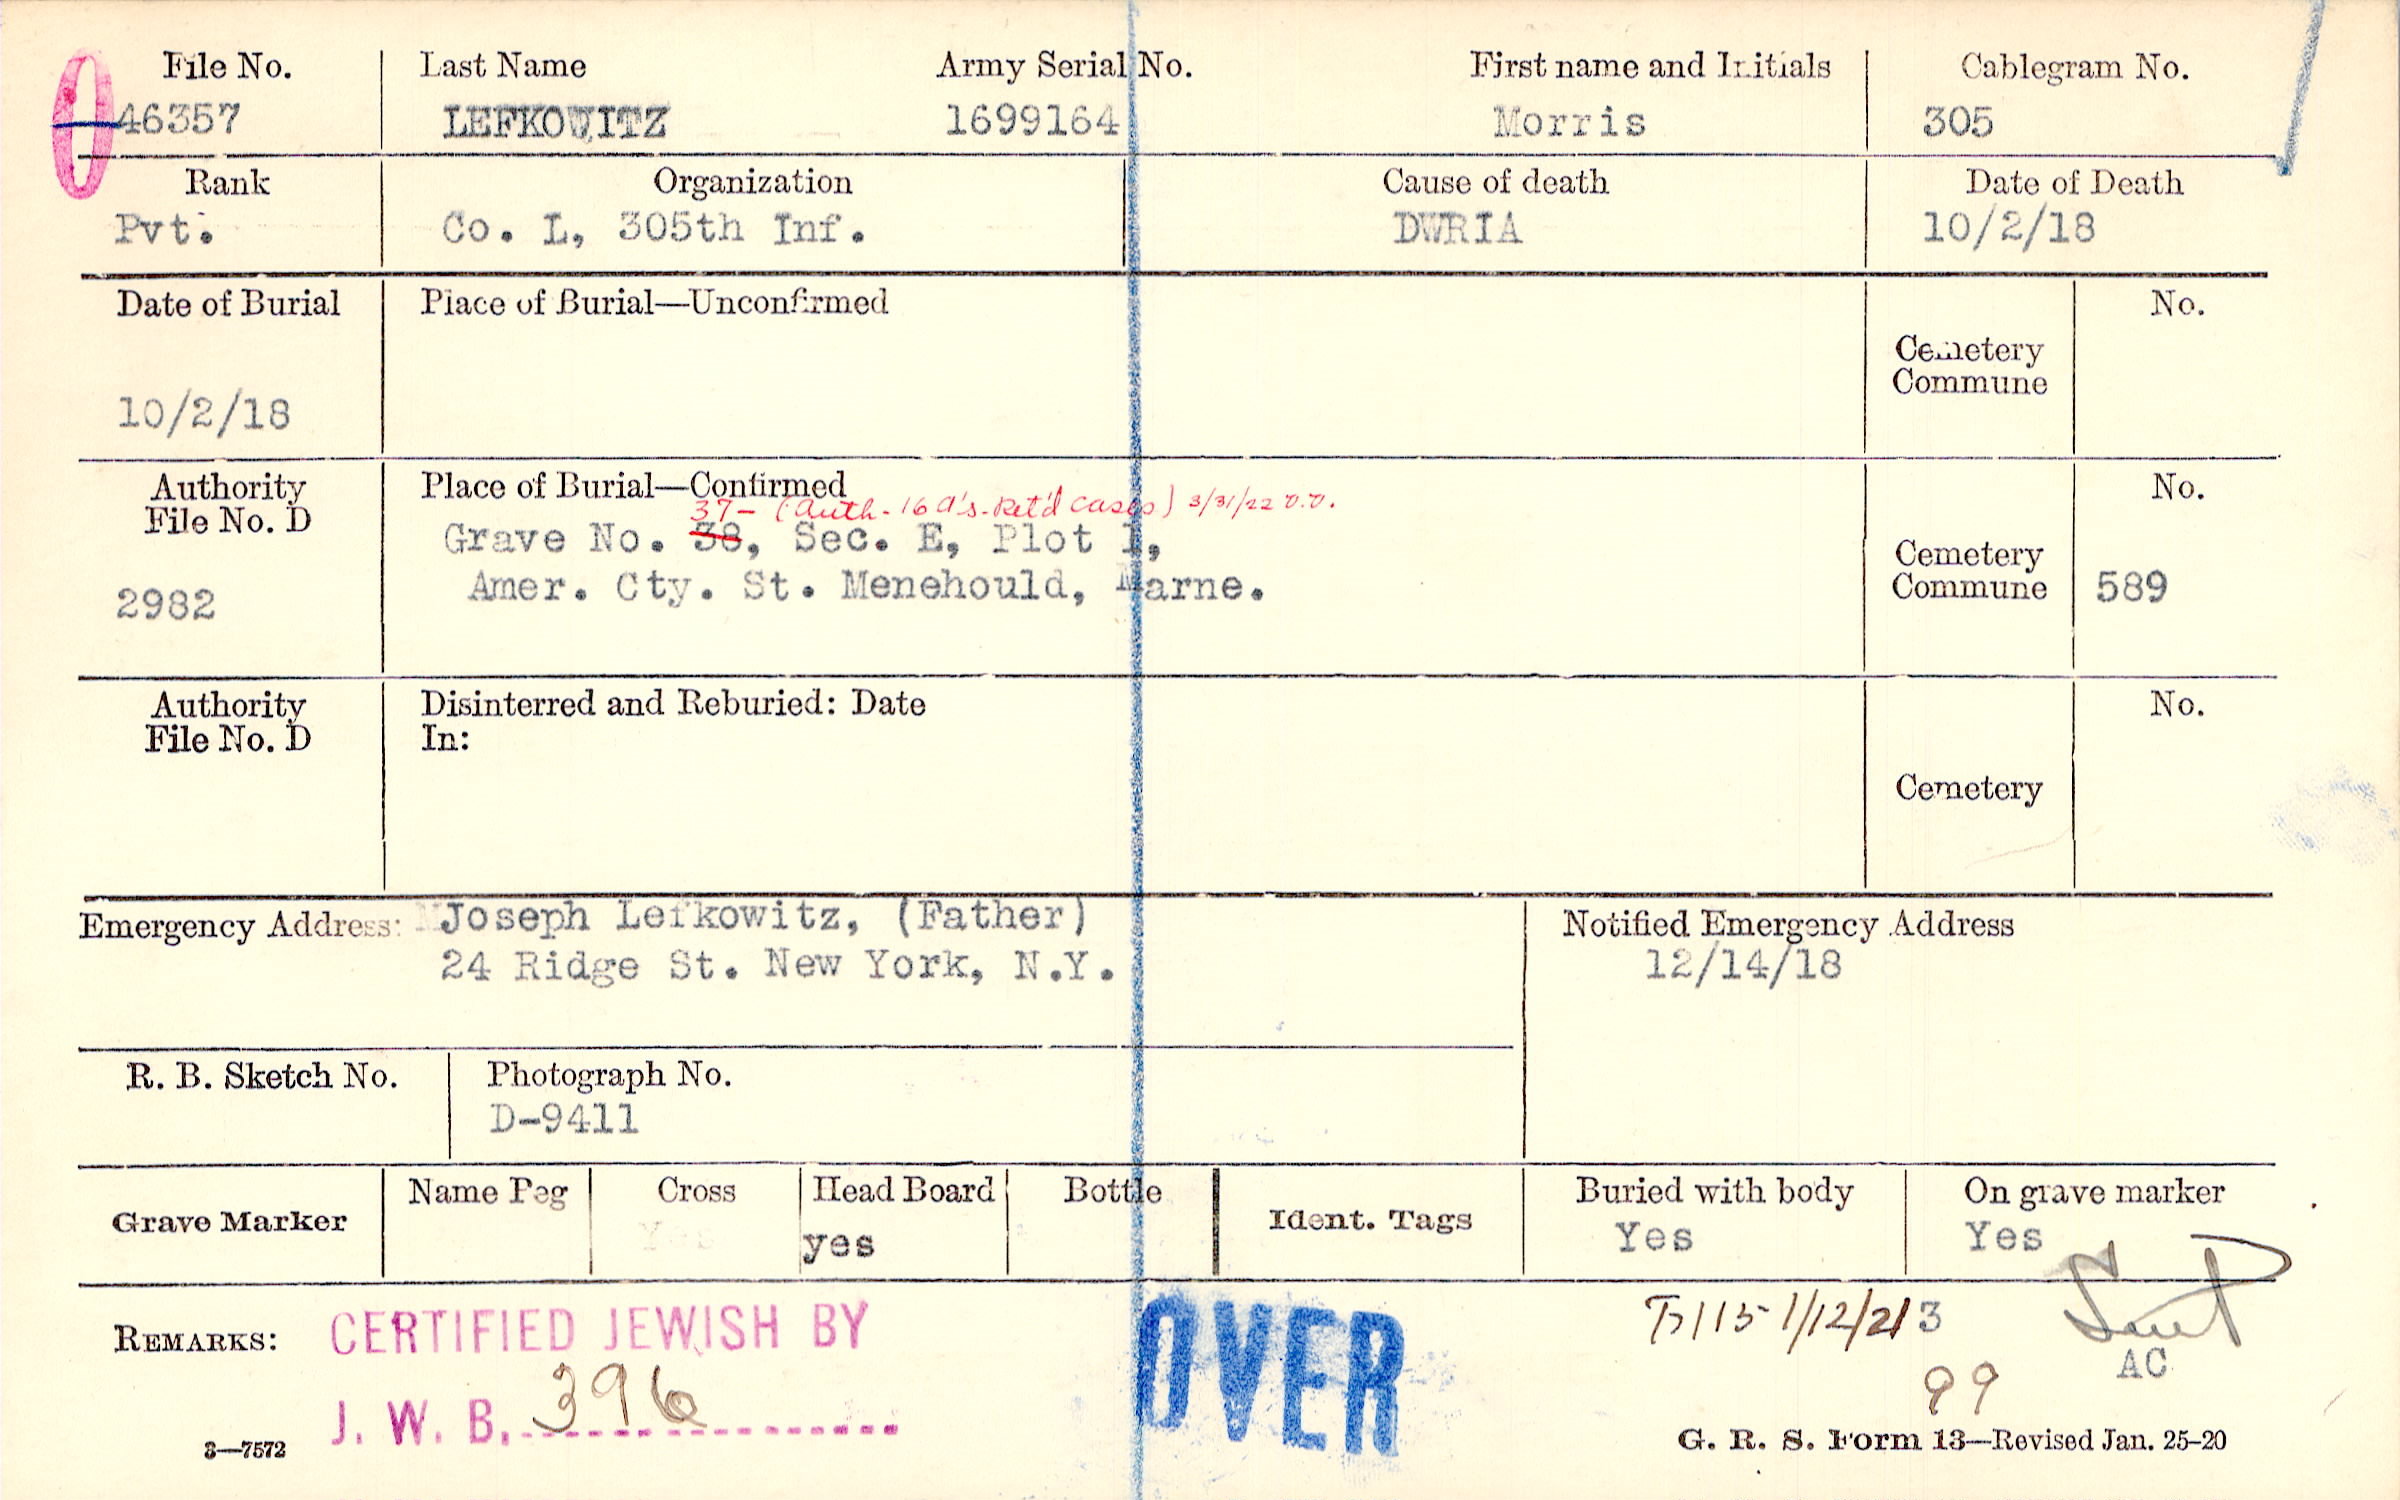 File No. Last Name Army Serial No. First name and Initials Cablegram No.
46357 LEFKOWITZ 1699164 Morris 305
Rank Organization Cause of death Date of Death
Pvt. Co. L, 305th Inf. DWRIA 10/2/18
Date of Burial Place of Burial—Unconfirmed No.
Cemetery
Commune
10/2/18
Authority Place of Burial—Confirmed No.
File No. D
37- (Auth - 16 A's - Ret'd cases) 3/31/22
Grave No. 38, Sec. E, Plot 1,
Cemetery
Commune 589
2982 Amer. Cty. St. Menehould, Marne.
Authority Disinterred and Reburied: Date No.
File No. D In:
Cemetery
Emergency Address: Joseph Lefkowitz, (Father)
24 Ridge St. New York, N.Y.
Notified Emergency Address
12/14/18
R. B. Sketch No. Photograph No.
D-9411
Grave Marker Name Peg Cross Head Board Bottle Ident. Tags Buried with body On grave marker
Yes yes Yes Yes
REMARKS: CERTIFIED JEWISH BY
J. W. B. 396
OVER
1/12/21 3
AC
99
3—7572
G. R. S. Form 13—Revised Jan. 25-20